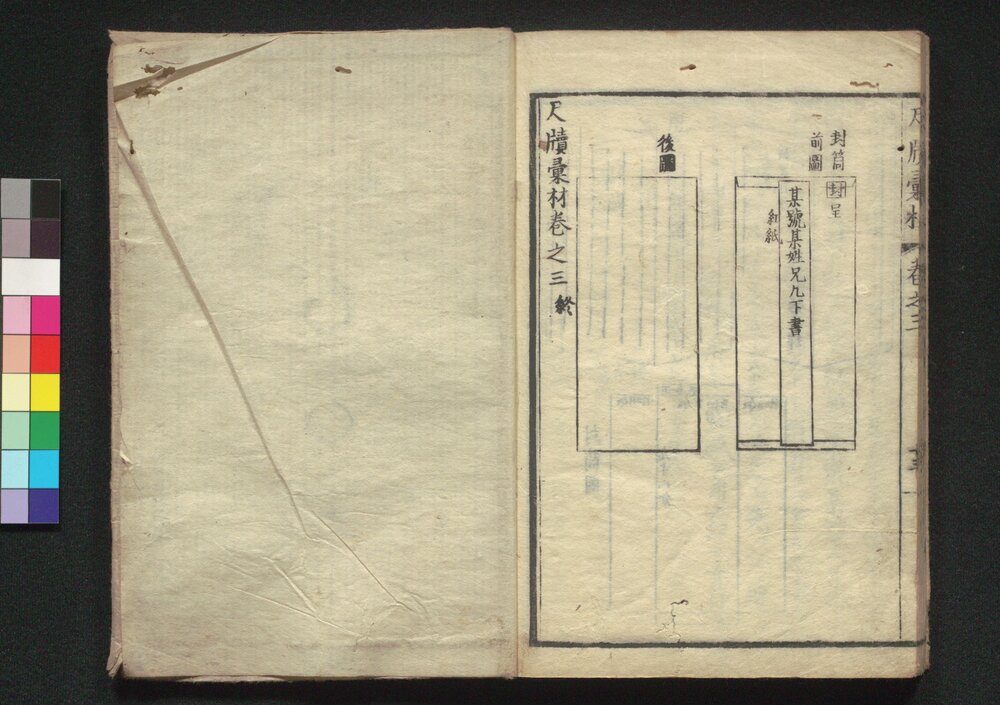 尺牘彙材 卷之三
封筒
前圖
封 呈
某號某姓兄几下書
紅紙
後圖
尺牘彙材卷之三 終